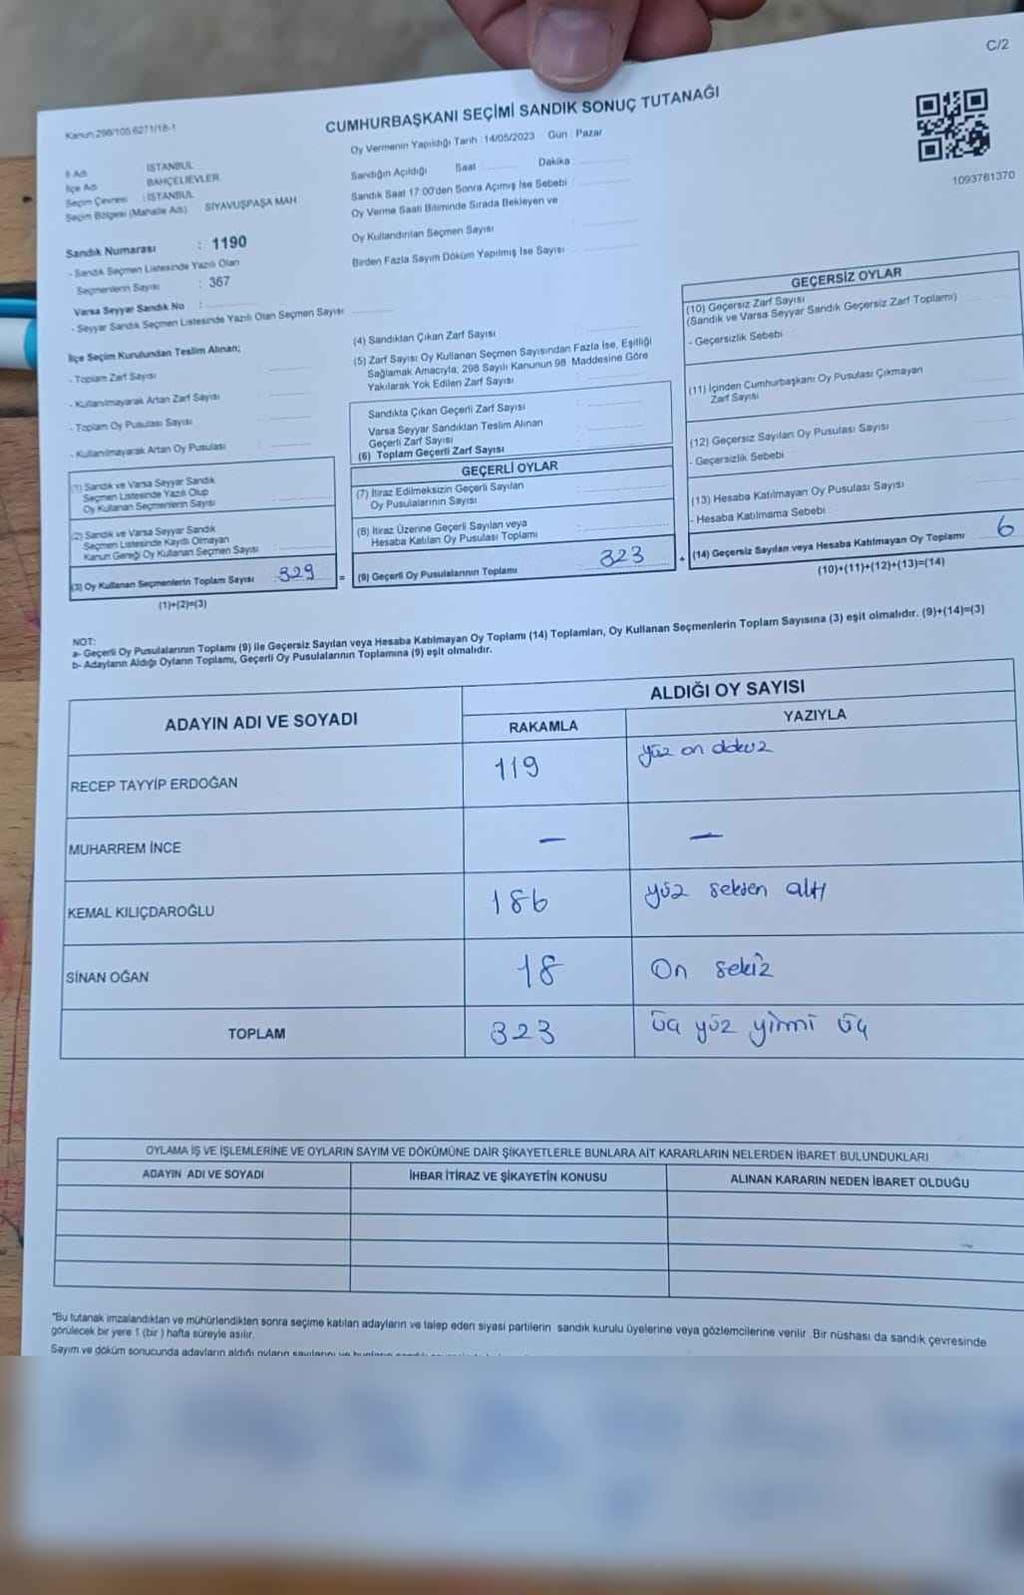 C/2
Kanun 298/105 6271/18-1
CUMHURBAŞKANI SEÇİMİ SANDIK SONUÇ TUTANAĞI
Oy Vermenin Yapıldığı Tarih : 14/05/2023 Gün : Pazar
1093781370
İl Adı : İSTANBUL
İlçe Adı : BAHÇELİEVLER
Seçim Çevresi : İSTANBUL
Seçim Bölgesi (Mahalle Adı) SİYAVUŞPAŞA MAH
Sandık Numarası : 1190
- Sandık Seçmen Listesinde Yazılı Olan
Seçmenlerin Sayısı : 367
Varsa Seyyar Sandık No :
- Seyyar Sandık Seçmen Listesinde Yazılı Olan Seçmen Sayısı
Sandığın Açıldığı Saat Dakika
Sandık Saat 17:00'den Sonra Açılmış İse Sebebi
Oy Verme Saati Bitiminde Sırada Bekleyen ve
Oy Kullandırılan Seçmen Sayısı
Birden Fazla Sayım Döküm Yapılmış İse Sayısı
İlçe Seçim Kurulundan Teslim Alınan;
- Toplam Zarf Sayısı
- Kullanılmayarak Artan Zarf Sayısı
- Toplam Oy Pusulası Sayısı
- Kullanılmayarak Artan Oy Pusulası
(1) Sandık ve Varsa Seyyar Sandık
Seçmen Listesinde Yazılı Olup
Oy Kullanan Seçmenlerin Sayısı
(2) Sandık ve Varsa Seyyar Sandık
Seçmen Listesinde Kayıtlı Olmayan
Kanun Gereği Oy Kullanan Seçmen Sayısı
(3) Oy Kullanan Seçmenlerin Toplam Sayısı 329
(1)+(2)=(3)
(4) Sandıktan Çıkan Zarf Sayısı
(5) Zarf Sayısı Oy Kullanan Seçmen Sayısından Fazla İse, Eşitliği
Sağlamak Amacıyla, 298 Sayılı Kanunun 98. Maddesine Göre
Yakılarak Yok Edilen Zarf Sayısı
Sandıkta Çıkan Geçerli Zarf Sayısı
Varsa Seyyar Sandıktan Teslim Alınan
Geçerli Zarf Sayısı
(6) Toplam Geçerli Zarf Sayısı
GEÇERLİ OYLAR
(7) İtiraz Edilmeksizin Geçerli Sayılan
Oy Pusulalarının Sayısı
(8) İtiraz Üzerine Geçerli Sayılan veya
Hesaba Katılan Oy Pusulası Toplamı
= (9) Geçerli Oy Pusulalarının Toplamı 323
GEÇERSİZ OYLAR
(10) Geçersiz Zarf Sayısı
(Sandık ve Varsa Seyyar Sandık Geçersiz Zarf Toplamı)
- Geçersizlik Sebebi
(11) İçinden Cumhurbaşkanı Oy Pusulası Çıkmayan
Zarf Sayısı
(12) Geçersiz Sayılan Oy Pusulası Sayısı
- Geçersizlik Sebebi
(13) Hesaba Katılmayan Oy Pusulası Sayısı
- Hesaba Katılmama Sebebi
+ (14) Geçersiz Sayılan veya Hesaba Katılmayan Oy Toplamı 6
(10)+(11)+(12)+(13)=(14)
NOT:
a- Geçerli Oy Pusulalarının Toplamı (9) ile Geçersiz Sayılan veya Hesaba Katılmayan Oy Toplamı (14) Toplamları, Oy Kullanan Seçmenlerin Toplam Sayısına (3) eşit olmalıdır. (9)+(14)=(3)
b- Adayların Aldığı Oyların Toplamı, Geçerli Oy Pusulalarının Toplamına (9) eşit olmalıdır.
ADAYIN ADI VE SOYADI
ALDIĞI OY SAYISI
RAKAMLA YAZIYLA
RECEP TAYYİP ERDOĞAN 119 yüz on dokuz
MUHARREM İNCE — —
KEMAL KILIÇDAROĞLU 186 yüz seksen altı
SİNAN OĞAN 18 On sekiz
TOPLAM 323 üç yüz yirmi üç
OYLAMA İŞ VE İŞLEMLERİNE VE OYLARIN SAYIM VE DÖKÜMÜNE DAİR ŞİKAYETLERLE BUNLARA AİT KARARLARIN NELERDEN İBARET BULUNDUKLARI
ADAYIN ADI VE SOYADI İHBAR İTİRAZ VE ŞİKAYETİN KONUSU ALINAN KARARIN NEDEN İBARET OLDUĞU
"Bu tutanak imzalandıktan ve mühürlendikten sonra seçime katılan adayların ve talep eden siyasi partilerin sandık kurulu üyelerine veya gözlemcilerine verilir. Bir nüshası da sandık çevresinde
görülecek bir yere 1 (bir) hafta süreyle asılır.
Sayım ve döküm sonucunda adayların aldığı oyların sayılarını ve